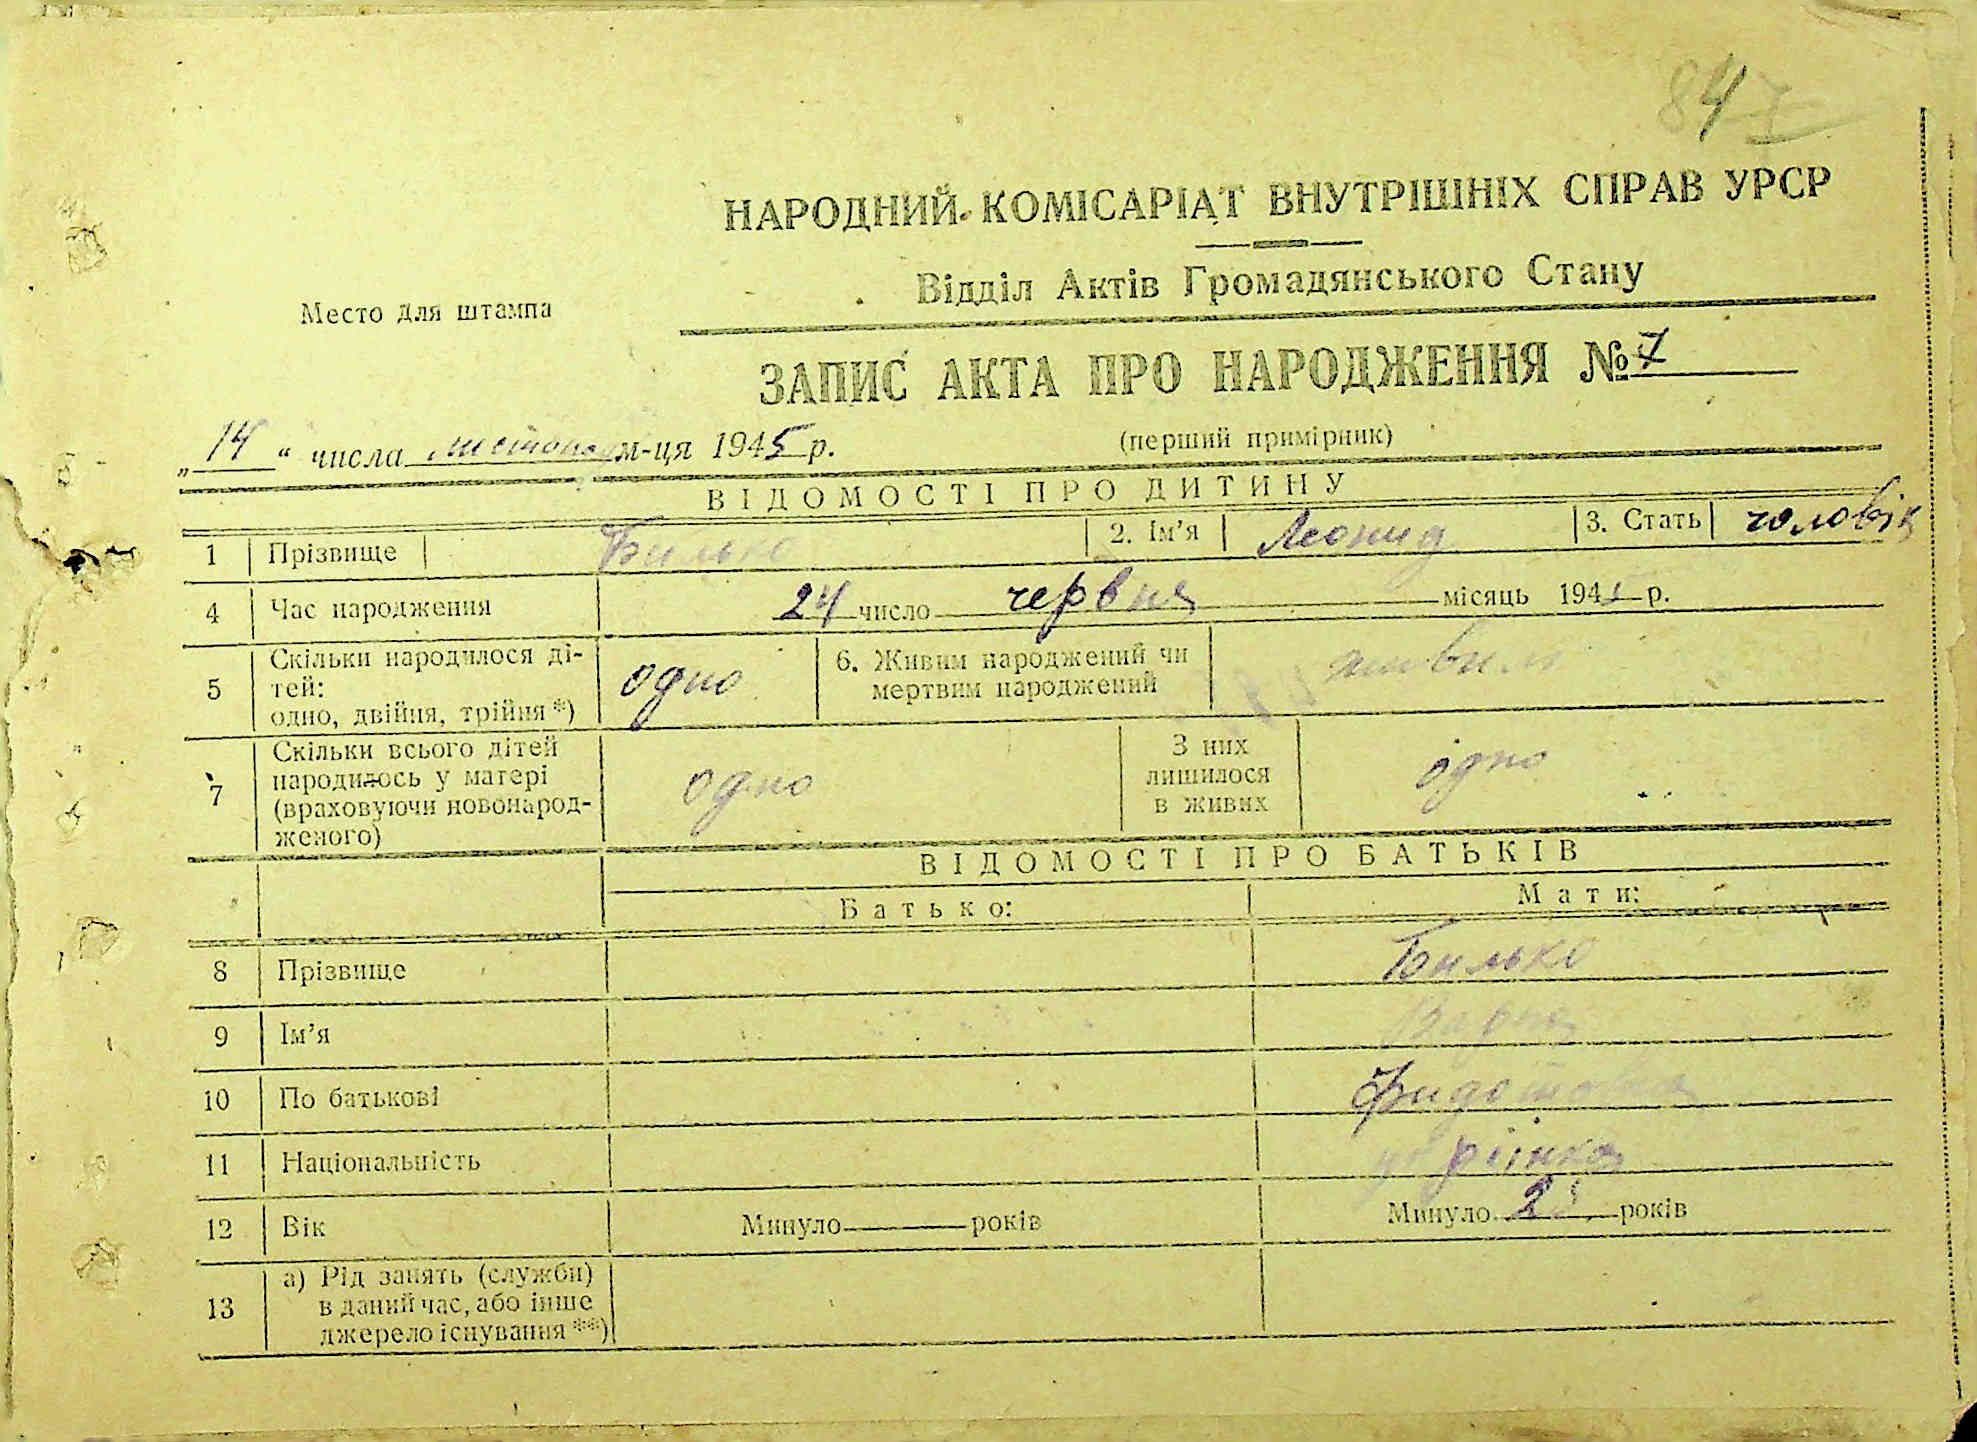 847
НАРОДНИЙ КОМІСАРІАТ ВНУТРІШНІХ СПРАВ УРСР
Відділ Актів Громадянського Стану
Место для штампа
ЗАПИС АКТА ПРО НАРОДЖЕННЯ № 7
„14“ числа листопад м-ця 1945 р.
(перший примірник)
ВІДОМОСТІ ПРО ДИТИНУ
1 Прізвище Билько 2. Ім'я Леонид 3. Стать чоловік
4 Час народження 24 число червня місяць 1945 р.
5 Скільки народилося ді-
тей:
одно, двійня, трійня *) одно 6. Живим народжений чи
мертвим народжений живим
7 Скільки всього дітей
народилось у матері
(враховуючи новонарод-
женого) одно З них
лишилося
в живих одно
ВІДОМОСТІ ПРО БАТЬКІВ
Батько: Мати:
8 Прізвище Билько
9 Ім'я
10 По батькові Фидотовна
11 Національність
12 Вік Минуло років Минуло років
13 а) Рід занять (служби)
в даний час, або інше
джерело існування **)